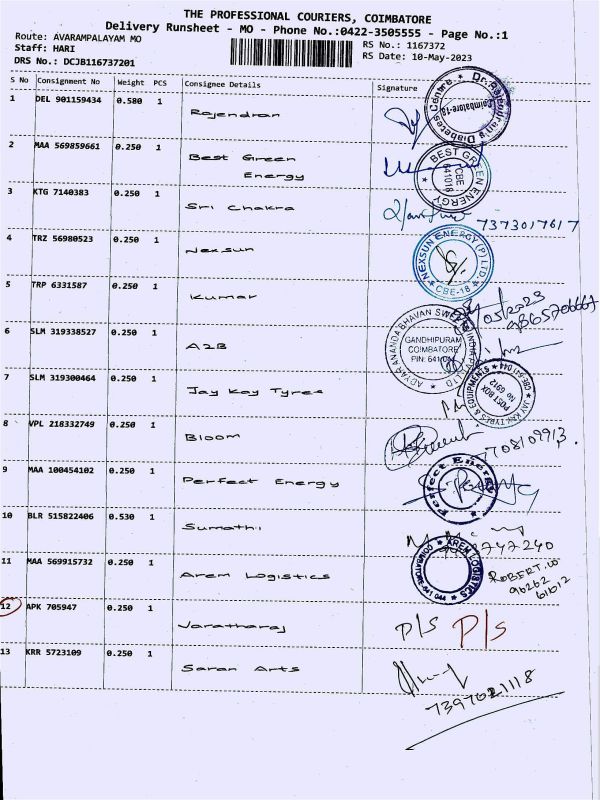 THE PROFESSIONAL COURIERS, COIMBATORE
Delivery Runsheet - MO - Phone No.:0422-3505555 - Page No.:1
Route: AVARAMPALAYAM MO
RS No.: 1167372
Staff: HARI
RS Date: 10-May-2023
DRS No.: DCJB116737201
S No Consignment No Weight PCS Consignee Details Signature
1 DEL 901159434 0.580 1 Rajendran
Coimbatore-18
2 MAA 569859661 0.250 1 Best Green
Energy
BEST GREEN ENERGY CBE 641018
3 KTG 7140383 0.250 1 Sri Chakra
7373017617
4 TRZ 56980523 0.250 1 Nexsun
NEXSUN ENERGY (P) LTD. CBE-18
5 TRP 6331587 0.250 1 Kumar
6 SLM 319338527 0.250 1 A2B
GANDHIPURAM
COIMBATORE
7 SLM 319300464 0.250 1 Jay Kay Tyres
JAY KAY TYRES & EQUIPMENTS
POST BOX
No 6912
8 VPL 218332749 0.250 1 Bloom
7708109913.
9 MAA 100454102 0.250 1 Perfect Energy
Perfect Energy
10 BLR 515822406 0.530 1 Sumathi
11 MAA 569915732 0.250 1 Arem Logistics
AREM LOGISTICS
COIMBATORE-641 044
96262
61612
12 APK 705947 0.250 1 Varatharaj
P/S P/S
13 KRR 5723109 0.250 1 Saran Arts